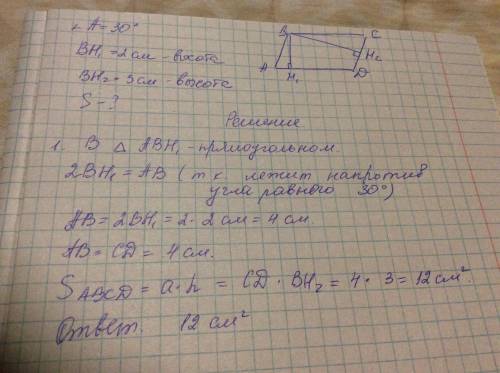 ∠ A = 30°
BH₁ = 2 см - высота
BH₂ = 3 см - высота
S - ?
B C
H₂
A H₁ D
Решение
1. В △ ABH₁ - прямоугольном.
2BH₁ = AB (т.к. лежит напротив
угла равного 30°)
AB = 2BH₁ = 2 · 2 см = 4 см.
AB = CD = 4 см.
S ABCD = a · h = CD · BH₂ = 4 · 3 = 12 см².
Ответ. 12 см²